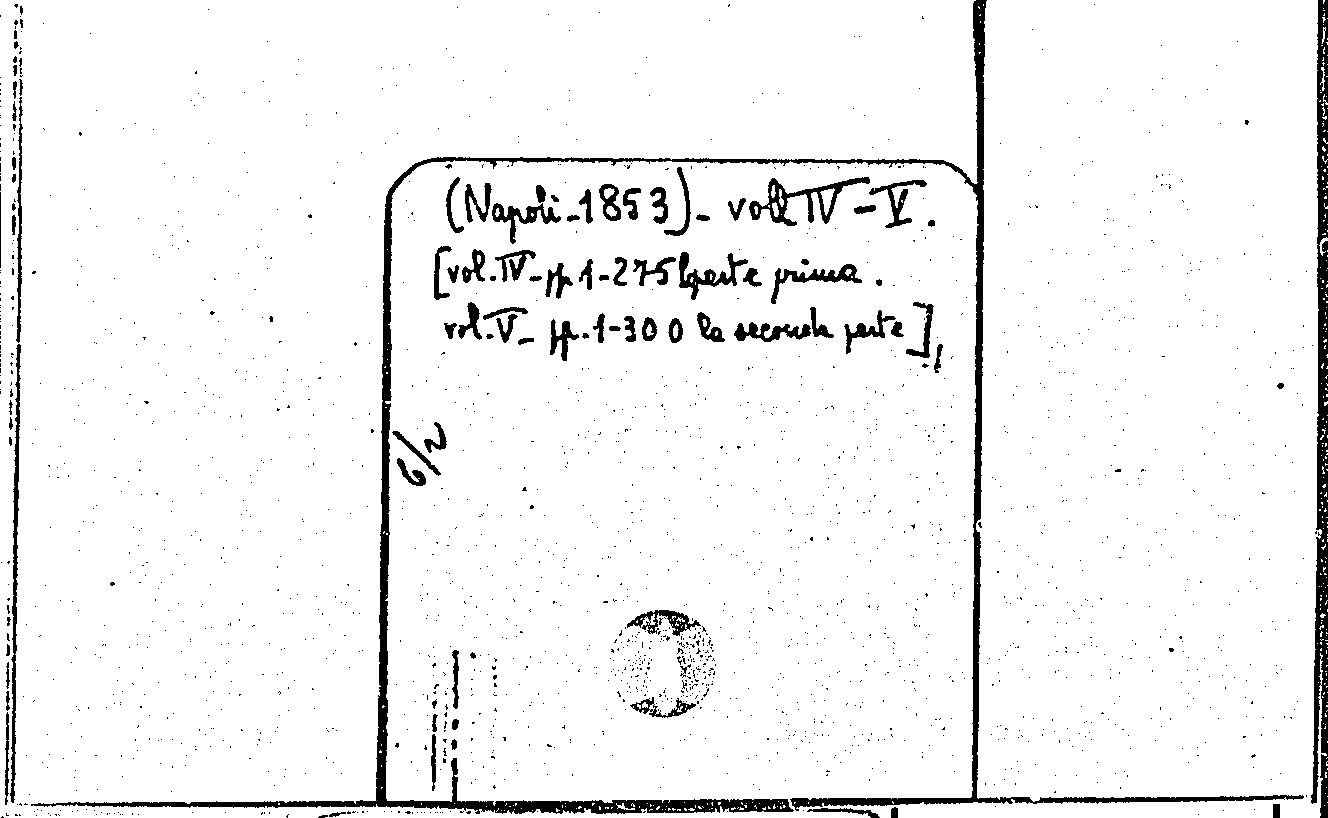 (Napoli - 1853) - voll IV - V.
[vol. IV - pp. 1-275 la parte prima.
vol. V - pp. 1-300 la seconda parte],
6/2